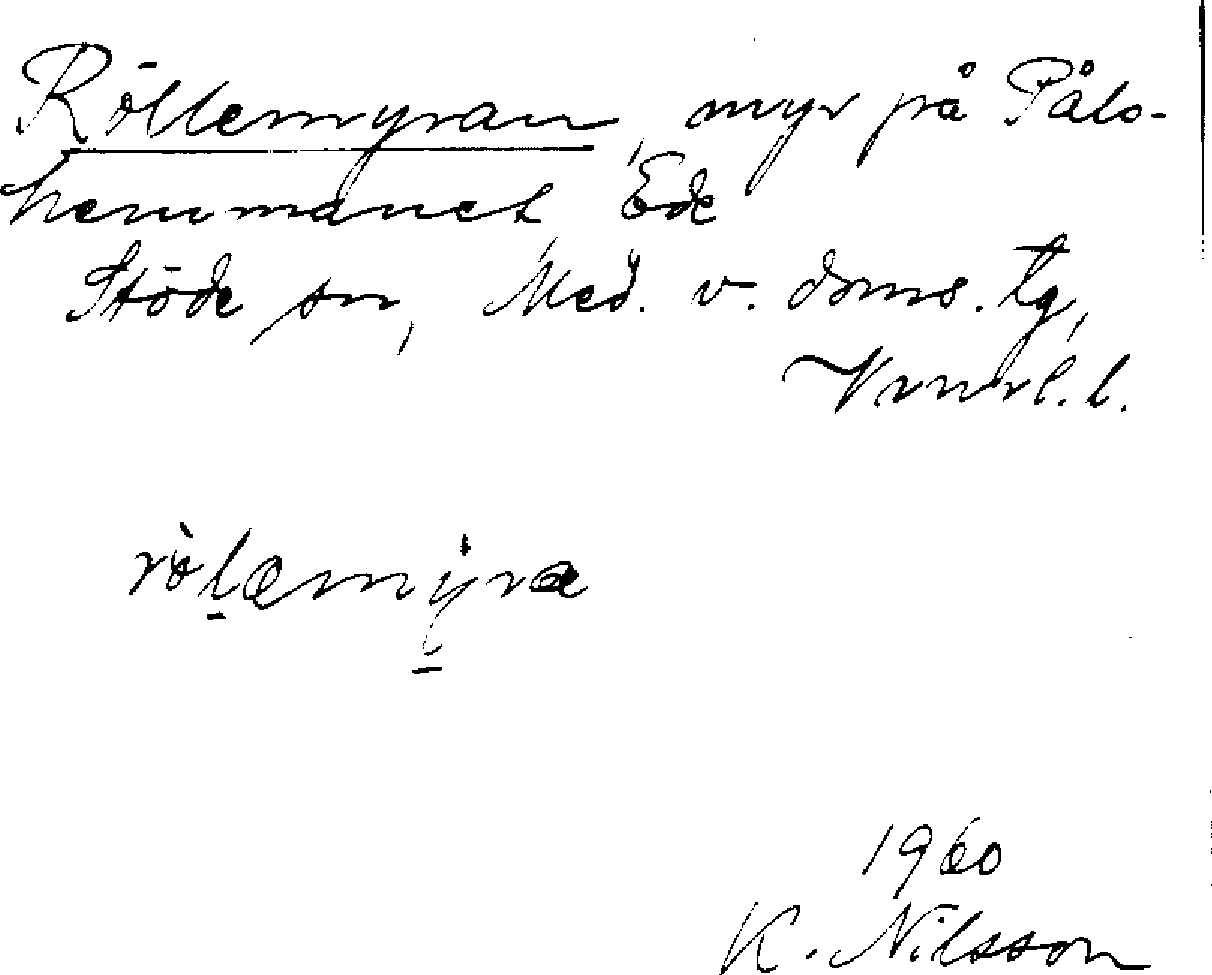 Röllemyran, myr på Påls-
hemmanet, Ede
Stöde sn, Med. v. doms. tg,
Vnorl. l.
rò̈læmẏra
1960
K. Nilsson